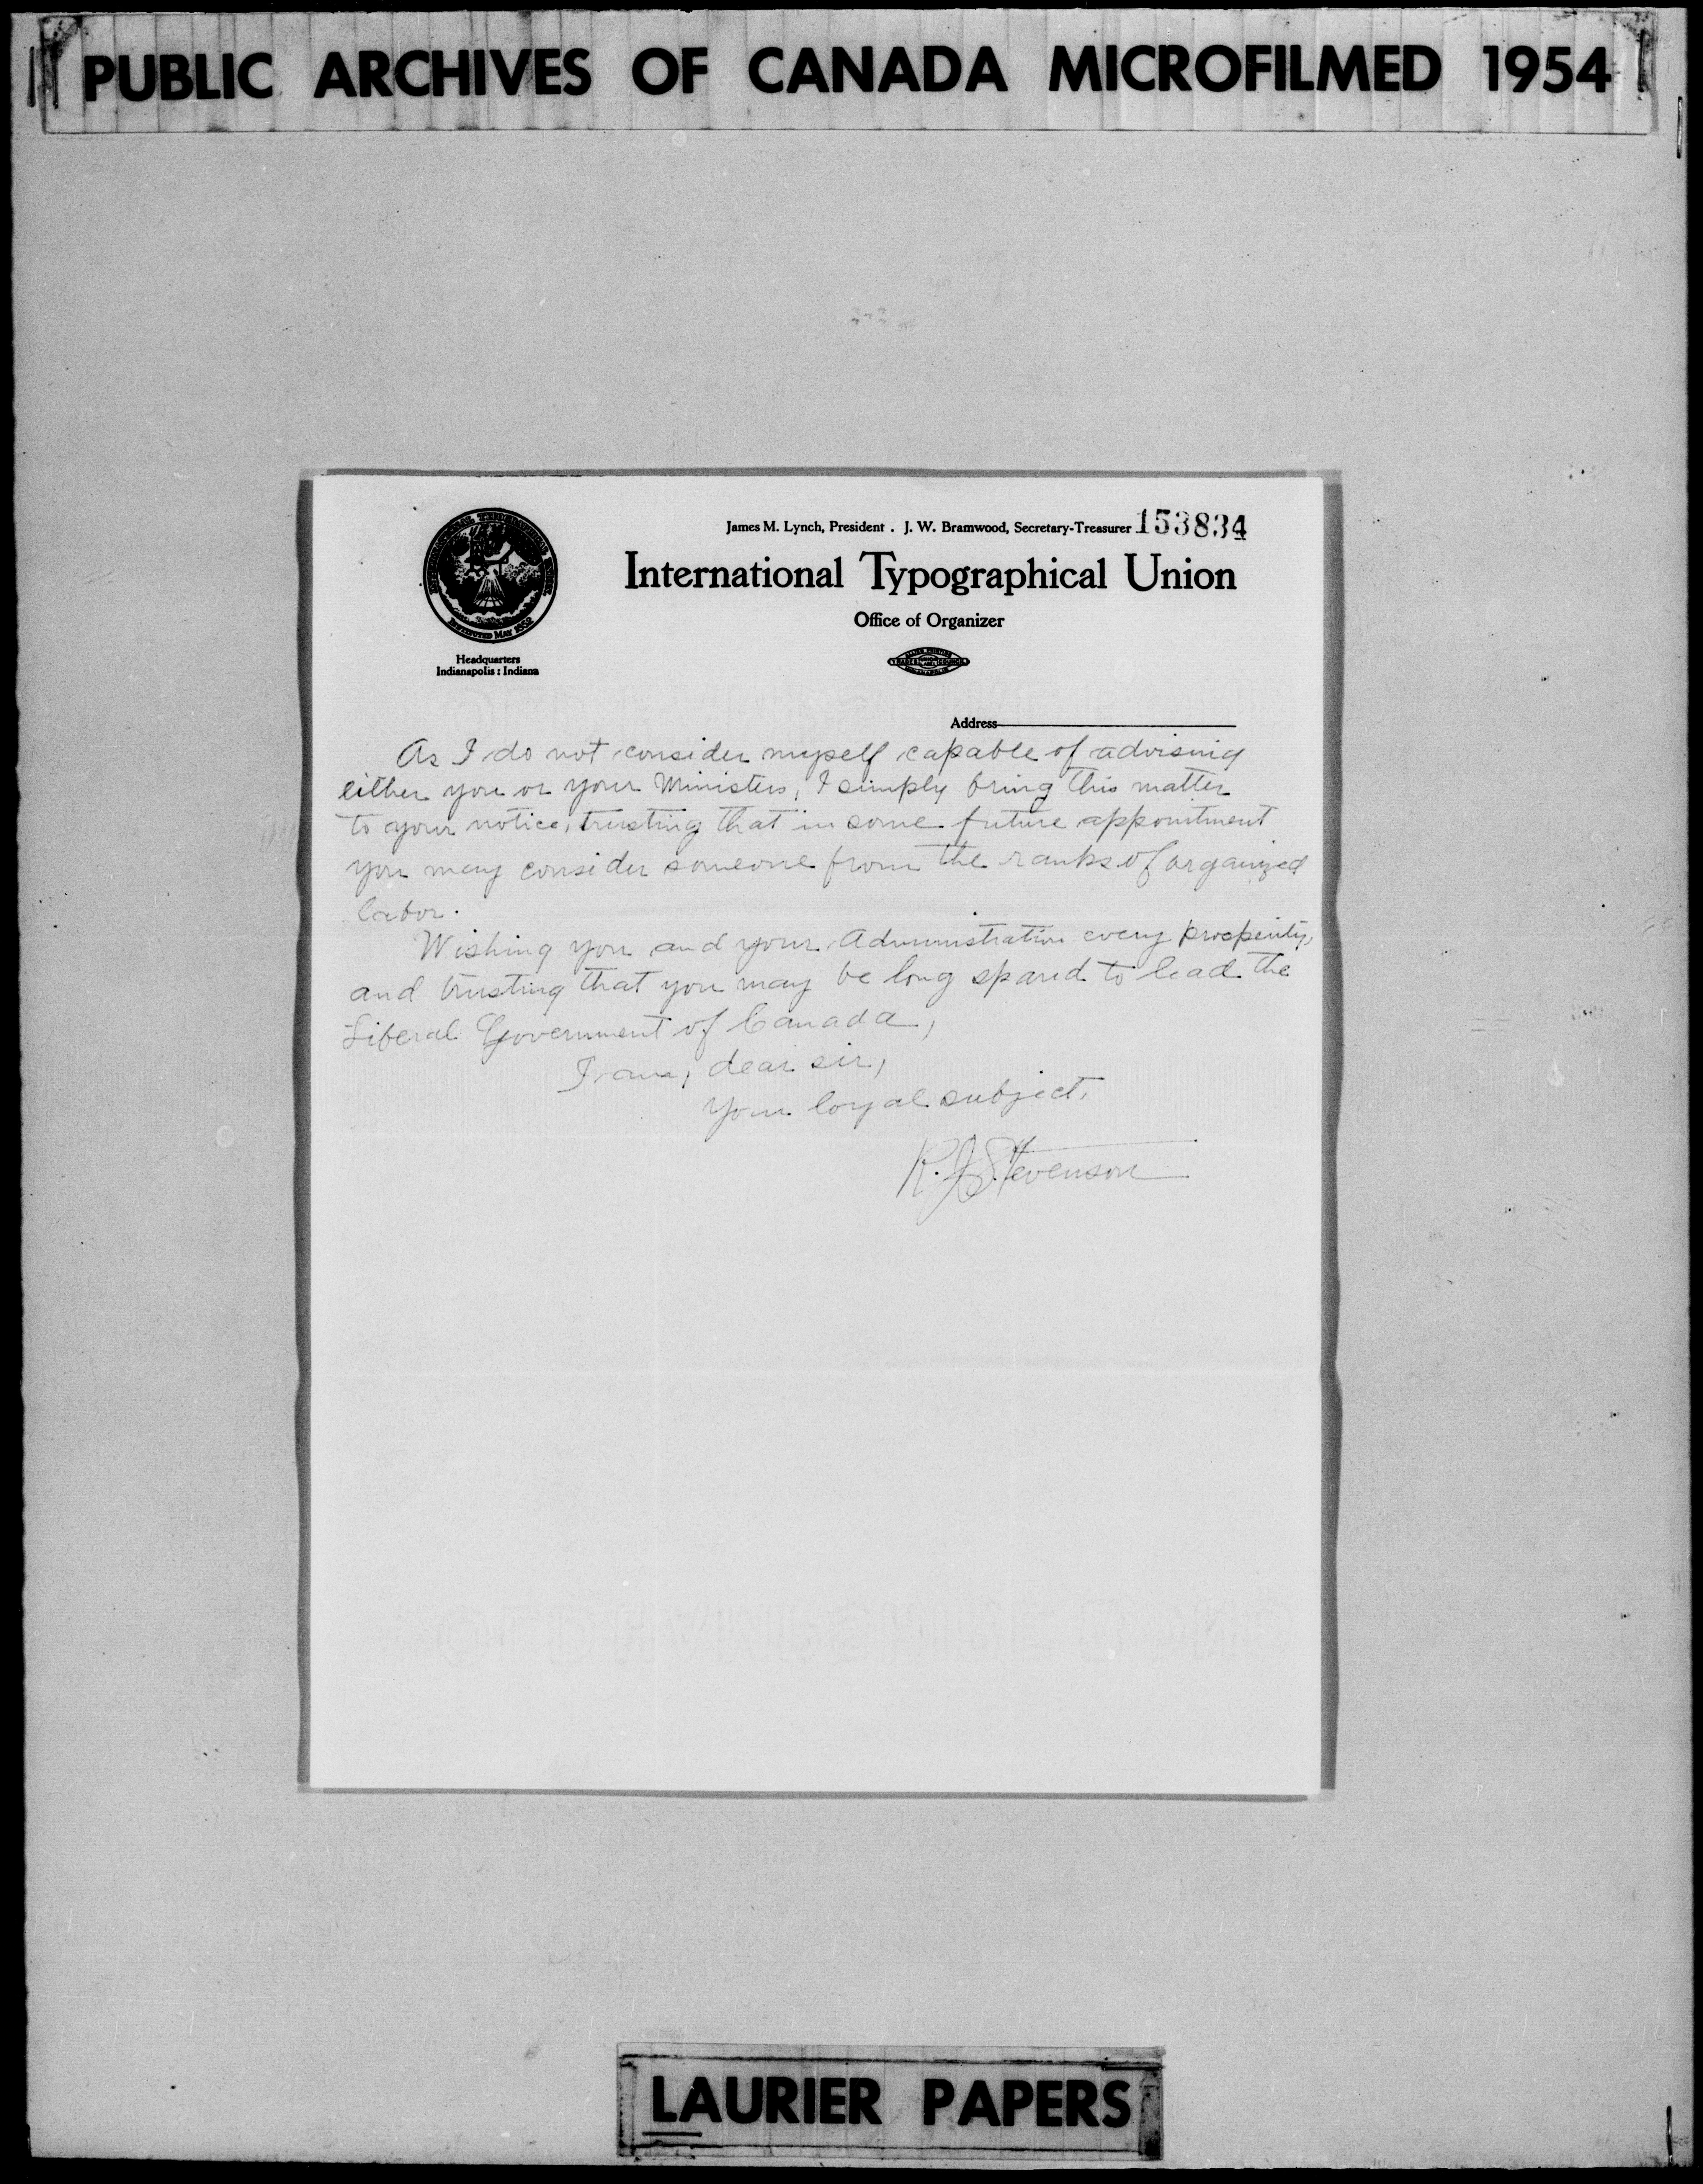 PUBLIC ARCHIVES OF CANADA MICROFILMED 1954
James M. Lynch, President . J. W. Bramwood, Secretary-Treasurer 153834
International Typographical Union
Office of Organizer
INTERNATIONAL TYPOGRAPHICAL UNION
INSTITUTED MAY 1852
Headquarters
Indianapolis : Indiana
Address
As I do not consider myself capable of advising
either you or your Ministers, I simply bring this matter
to your notice, trusting that in some future appointment
you may consider someone from the ranks of organized
labor.
Wishing you and your Administration every prosperity,
and trusting that you may be long spared to lead the
Liberal Government of Canada,
I am, dear sir,
Your loyal subject,
Stevenson
LAURIER PAPERS